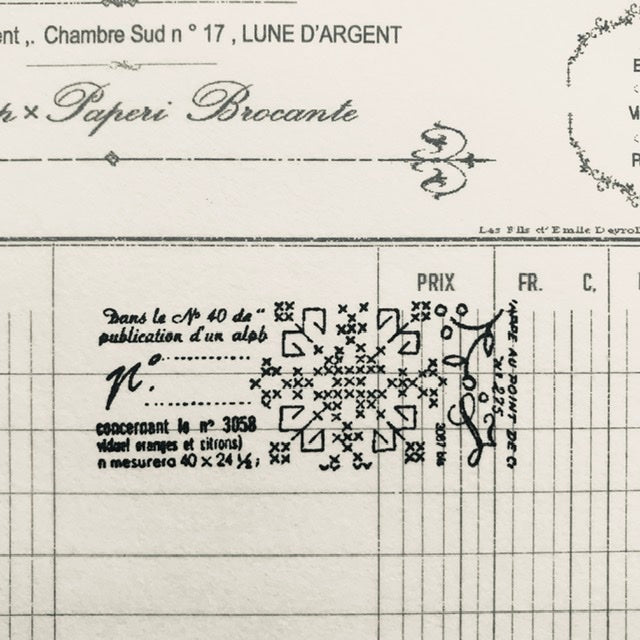 ent ,. Chambre Sud n ° 17 , LUNE D'ARGENT
h × Paperi Brocante
Les Fils d'Emile Deyrol
PRIX FR. C,
Dans le Nº 40 de "
publication d'un alpb
n°.
concernant le nº 3058
viduel oranges et citrons)
n mesurera 40 × 24 ½ ;
3087 bis
Nº 275
AU POINT DE C